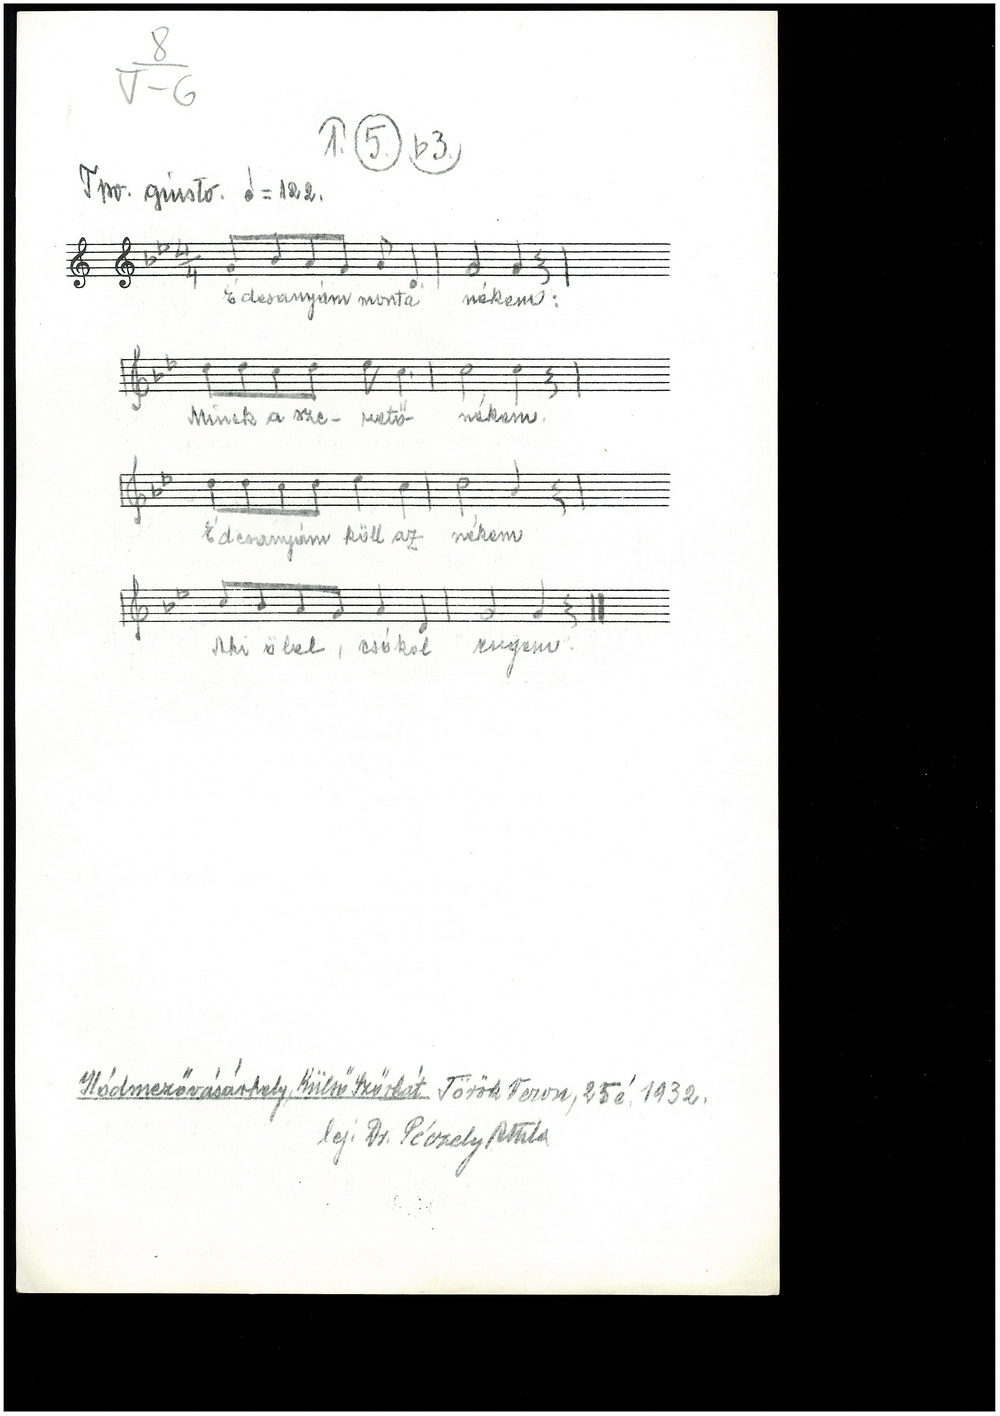 8
V-6
1. 5. b3.
Tpo. giusto. = 122.
4
4
Édesanyám monta nékem:
Minek a sze- rető nékem.
Édesanyám köll az nékem
Aki ölel, csókol engem.
Hódmezővásárhely, Külső Szőrhát Török Veron, 25 é. 1932.
lej. Dr. Péczely Attila